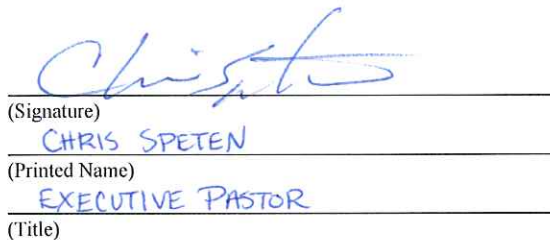 Chris Speten
(Signature)
CHRIS SPETEN
(Printed Name)
EXECUTIVE PASTOR
(Title)